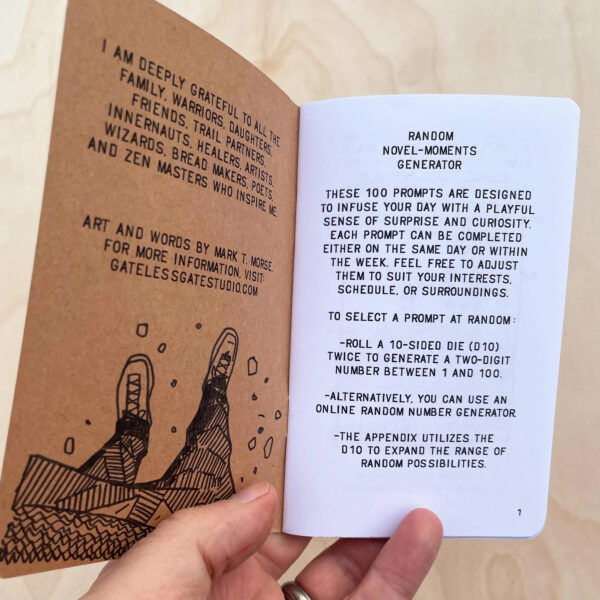 I AM DEEPLY GRATEFUL TO ALL THE
FAMILY, WARRIORS, DAUGHTERS,
FRIENDS, TRAIL PARTNERS,
INNERNAUTS, HEALERS, ARTISTS,
WIZARDS, BREAD MAKERS, POETS,
AND ZEN MASTERS WHO INSPIRE ME.
ART AND WORDS BY MARK T. MORSE.
FOR MORE INFORMATION, VISIT:
GATELESSGATESTUDIO.COM
RANDOM
NOVEL-MOMENTS
GENERATOR
THESE 100 PROMPTS ARE DESIGNED
TO INFUSE YOUR DAY WITH A PLAYFUL
SENSE OF SURPRISE AND CURIOSITY.
EACH PROMPT CAN BE COMPLETED
EITHER ON THE SAME DAY OR WITHIN
THE WEEK. FEEL FREE TO ADJUST
THEM TO SUIT YOUR INTERESTS,
SCHEDULE, OR SURROUNDINGS.
TO SELECT A PROMPT AT RANDOM:
-ROLL A 10-SIDED DIE (D10)
TWICE TO GENERATE A TWO-DIGIT
NUMBER BETWEEN 1 AND 100.
-ALTERNATIVELY, YOU CAN USE AN
ONLINE RANDOM NUMBER GENERATOR.
-THE APPENDIX UTILIZES THE
D10 TO EXPAND THE RANGE OF
RANDOM POSSIBILITIES.
1